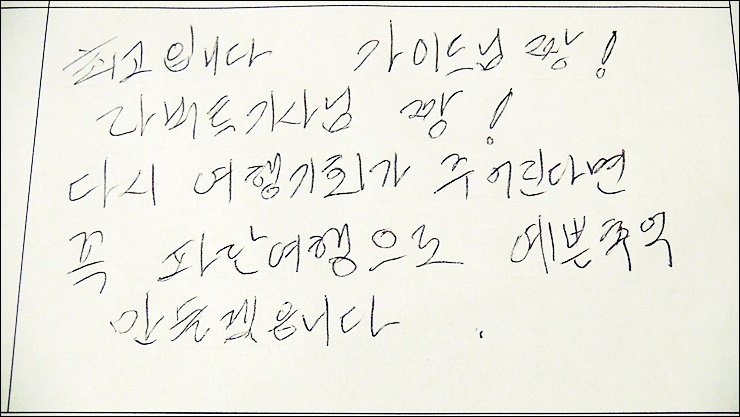 최고입니다 가이드님 짱!
라버트기사님 짱!
다시 여행기회가 주어진다면
꼭 파란여행으로 예쁜추억
만들겠습니다.